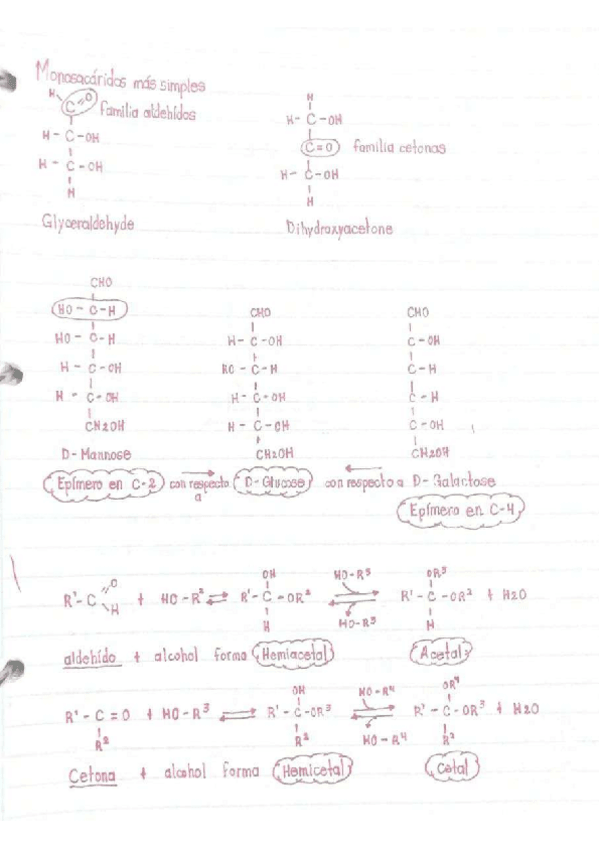 Monosacáridos más simples
H C=O familia aldehídos
H - C - OH
H - C - OH
H
Glyceraldehyde
H
H - C - OH
C=O familia cetonas
H - C - OH
H
Dihydroxyacetone
CHO
HO - C - H
HO - C - H
H - C - OH
H - C - OH
CH2OH
D-Mannose
CHO
H - C - OH
HO - C - H
H - C - OH
H - C - OH
CH2OH
CHO
C - OH
C - H
C - H
C - OH
CH2OH
Epímero en C-2 con respecto a D-Glucose con respecto a D-Galactose
Epímero en C-4
R' - C O H + HO - R² ⇌ R' - C - OR² OH H HO-R³ ⇌ HO-R³ R' - C - OR² OR³ H + H2O
aldehído + alcohol forma Hemiacetal Acetal
R' - C = O R² + HO - R³ ⇌ R' - C - OR³ OH R² HO-R⁴ ⇌ HO-R⁴ R' - C - OR³ OR⁴ R² + H2O
Cetona + alcohol forma Hemicetal Cetal